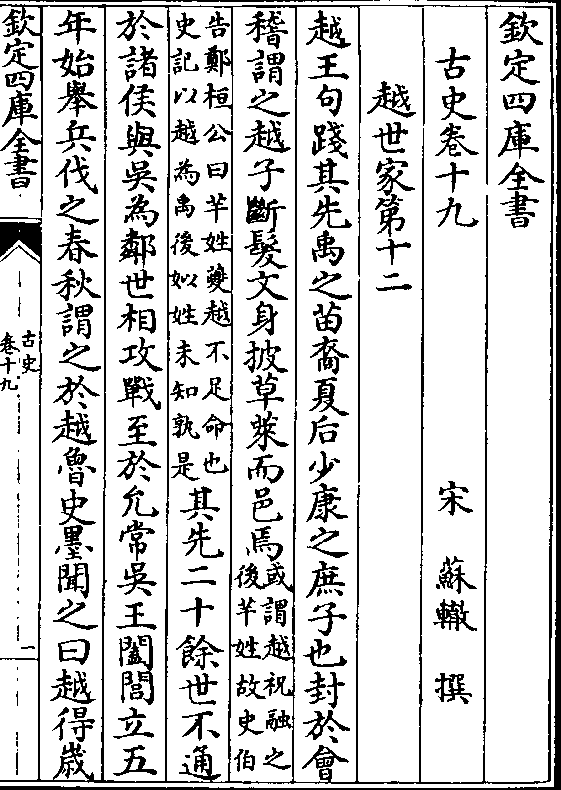 欽定四庫全書
古史卷十九 宋 蘇轍 撰
越世家第十二
越王句踐其先禹之苗裔夏后少康之庶子也封於會
稽謂之越子斷髮文身披草萊而邑焉
或謂越祝融之
後芊姓故史伯
告鄭桓公曰芊姓夔越不足命也
史記以越為禹後姒姓未知孰是
其先二十餘世不通
於諸侯與吳為鄰世相攻戰至於允常吳王闔閭立五
年始舉兵伐之春秋謂之於越魯史墨聞之曰越得歲
欽定四庫全書
古史
卷十九
一